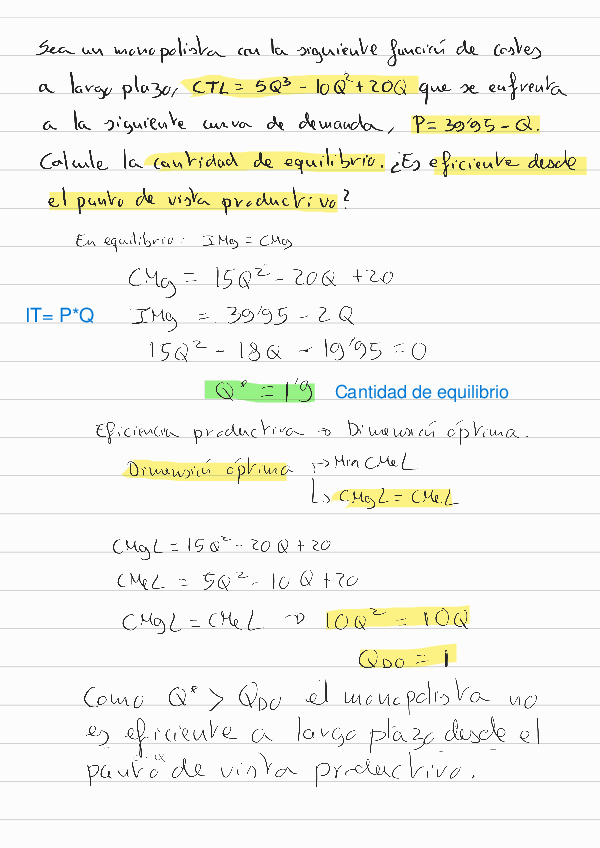 Sea un monopolista con la siguiente función de costes
a largo plazo, CTL = 5Q³ - 10Q² + 20Q que se enfrenta
a la siguiente curva de demanda, P = 39'95 - Q.
Calcule la cantidad de equilibrio. ¿Es eficiente desde
el punto de vista productivo?
En equilibrio: IMg = CMg
CMg = 15Q² - 20Q + 20
IT= P*Q IMg = 39'95 - 2Q
15Q² - 18Q - 19'95 = 0
Q* = 1'9 Cantidad de equilibrio
Eficiencia productiva → Dimensión óptima.
Dimensión óptima → Min CMeL
↳ CMgL = CMeL
CMgL = 15Q² - 20Q + 20
CMeL = 5Q² - 10Q + 20
CMgL = CMeL → 10Q² = 10Q
Q_DO = 1
Como Q* > Q_DO el monopolista no
es eficiente a largo plazo desde el
punto de vista productivo.